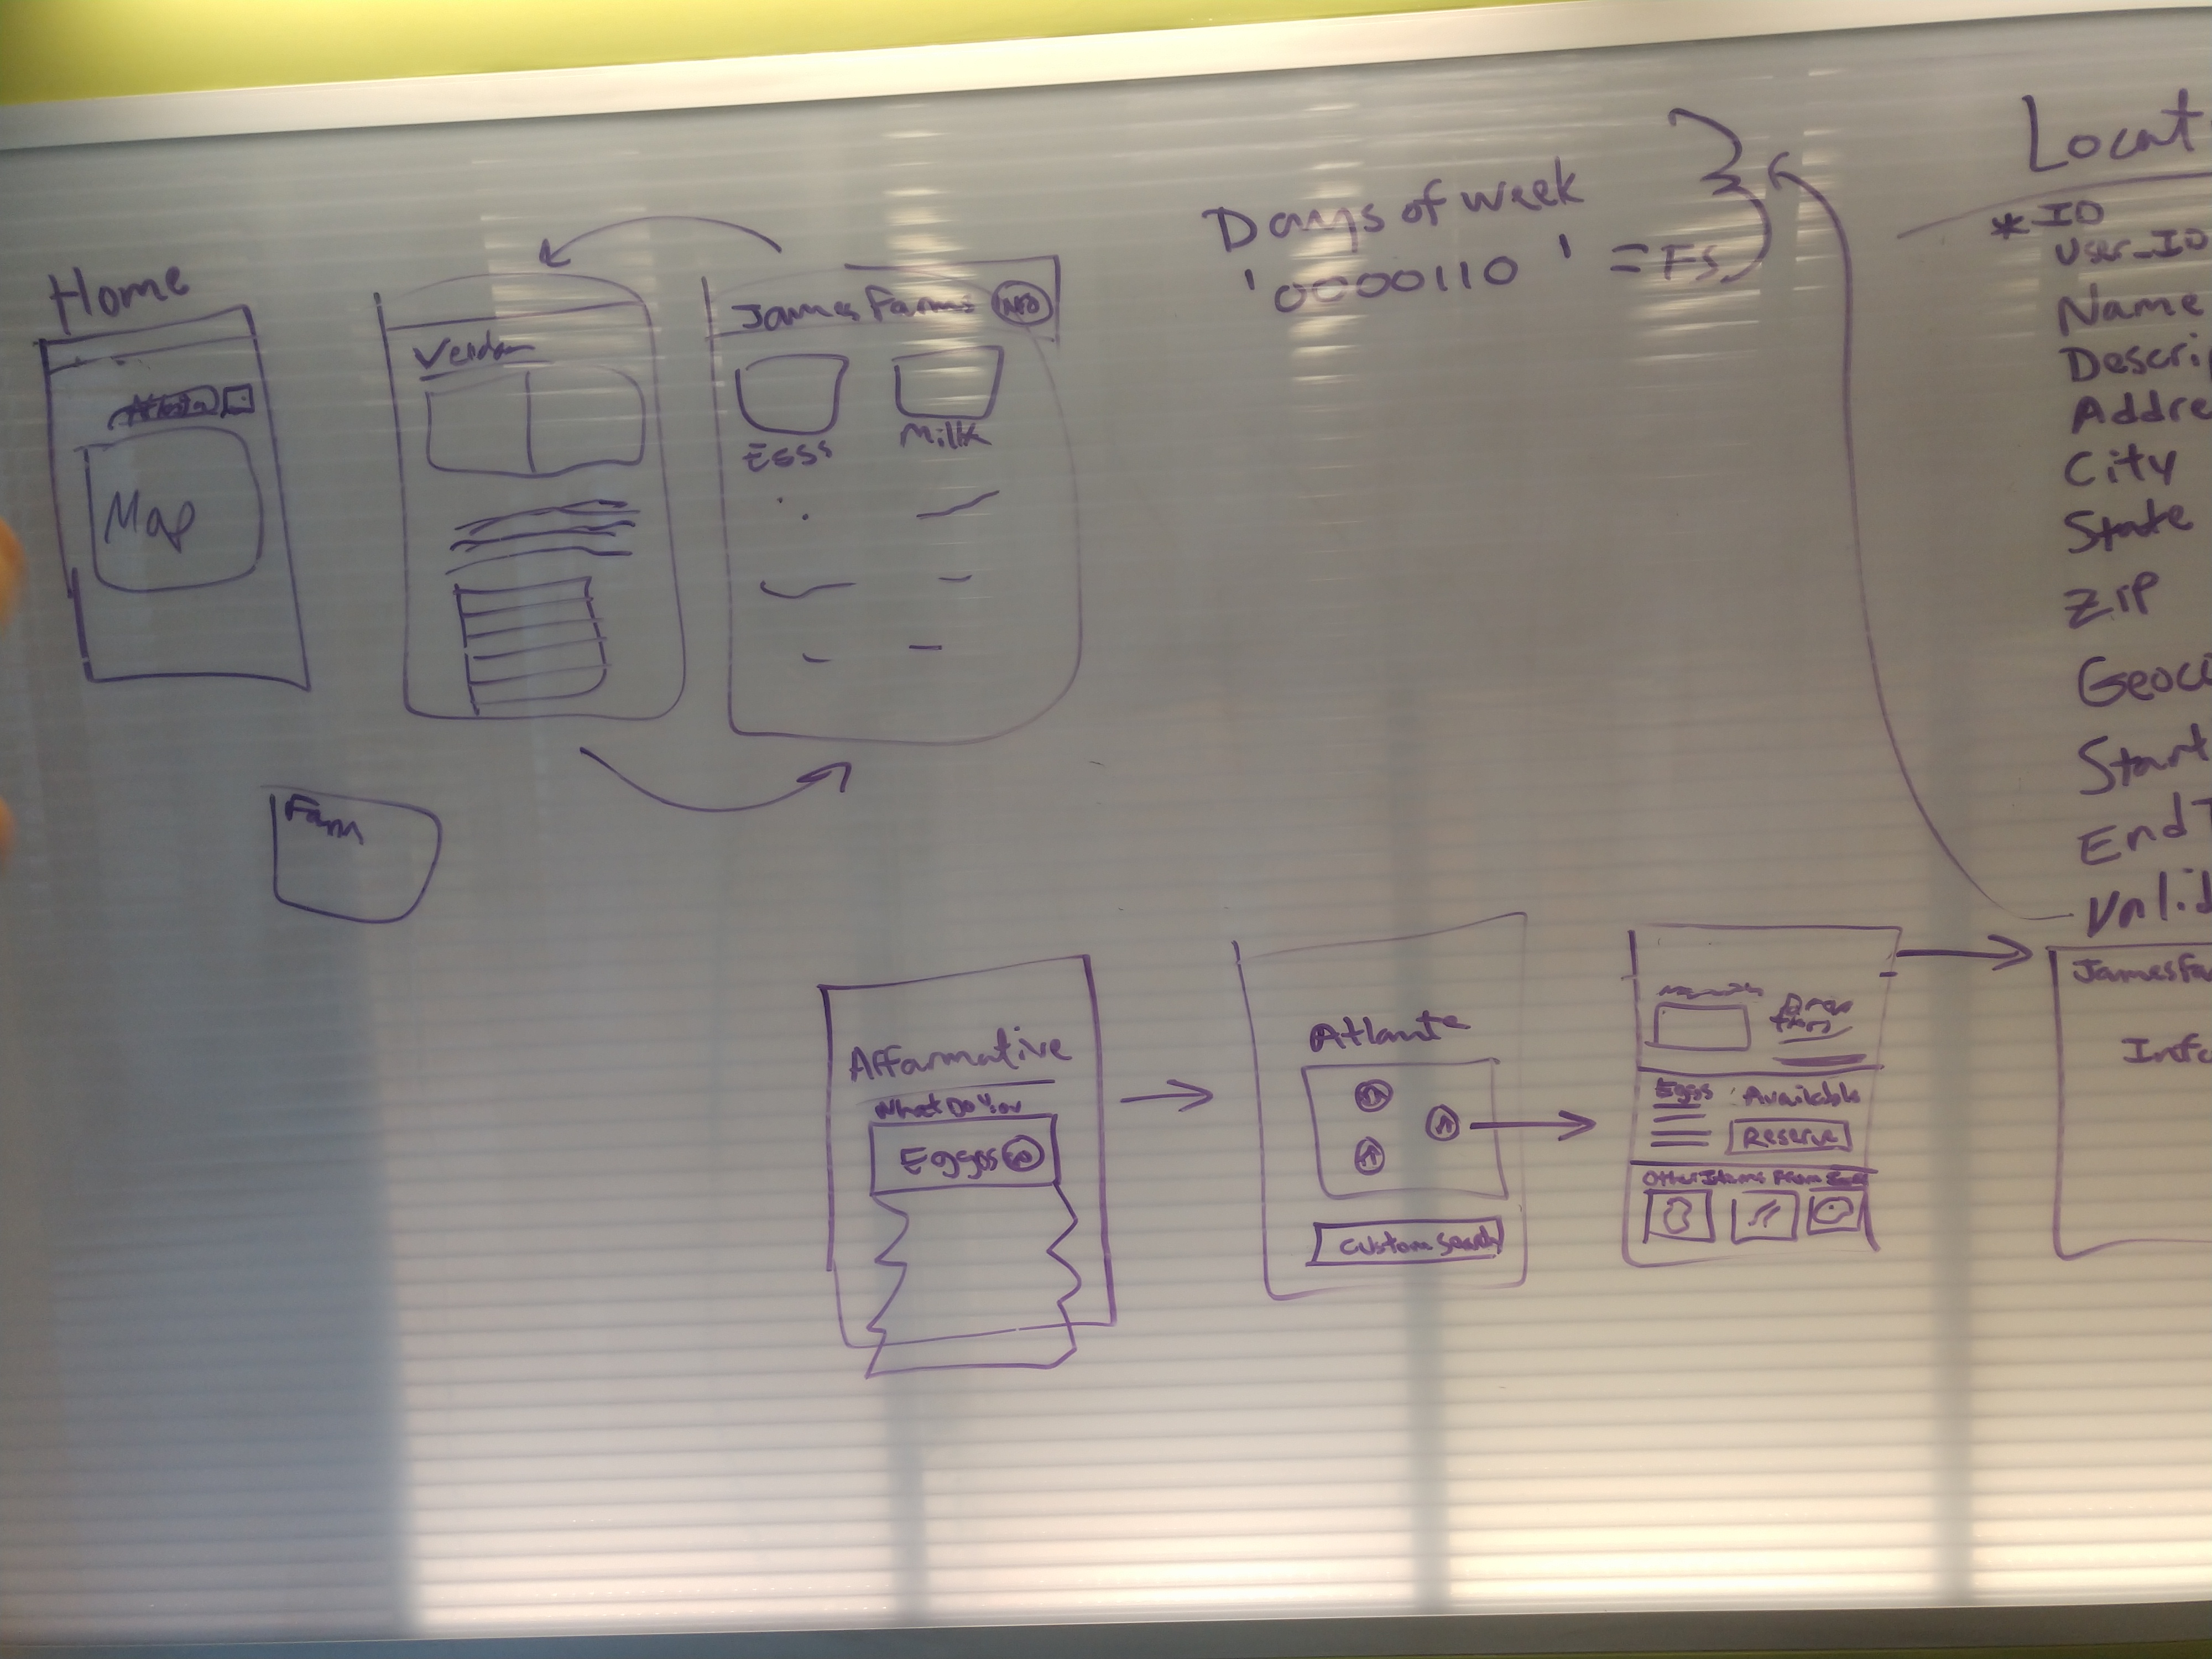 Home
Map
Vendor
James Farms INFO
Eggs
Milk
Days of week
'0000110' = FS
Farm
Locat
* ID
User_ID
Name
Descrip
Addre
City
State
Zip
Geoco
Start
End T
Valid
Affarmative
What Do You
Eggs
Atlanta
Custom Search
Eggs Available
Reserve
Other Items From
James Fa
Info